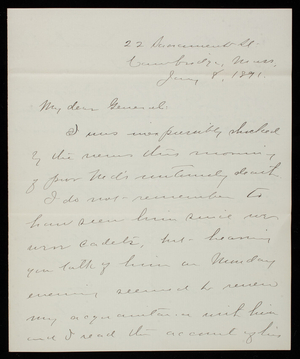 22 Monument St.
Cambridge, Mass.
Jany 8, 1891.
My dear General:
I was inexpressibly shocked
by the news this morning
of poor Ned's untimely death.
I do not remember to
have seen him since we
were cadets, but hearing
you talk of him on Monday
evening seemed to renew
my acquaintance with him
and I read the account of his